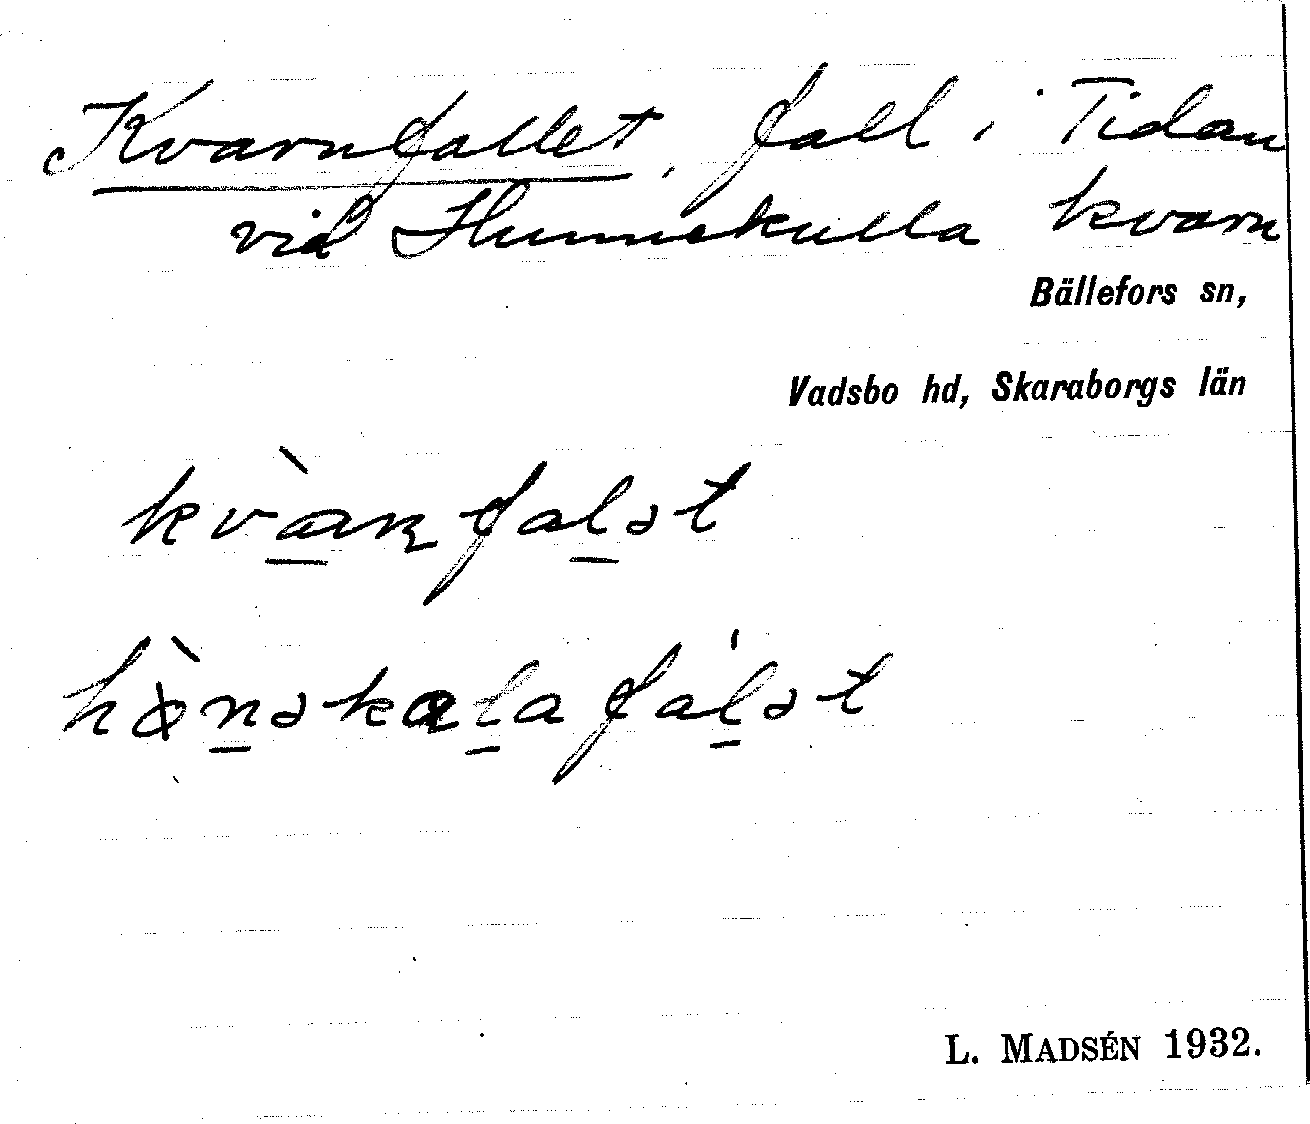 Kvarnfallet, fall i Tidan
vid Hunnekulla kvarn
Bällefors sn,
Vadsbo hd, Skaraborgs län
kvàɳfalət
hònəkalafálət
L. MADSÉN 1932.